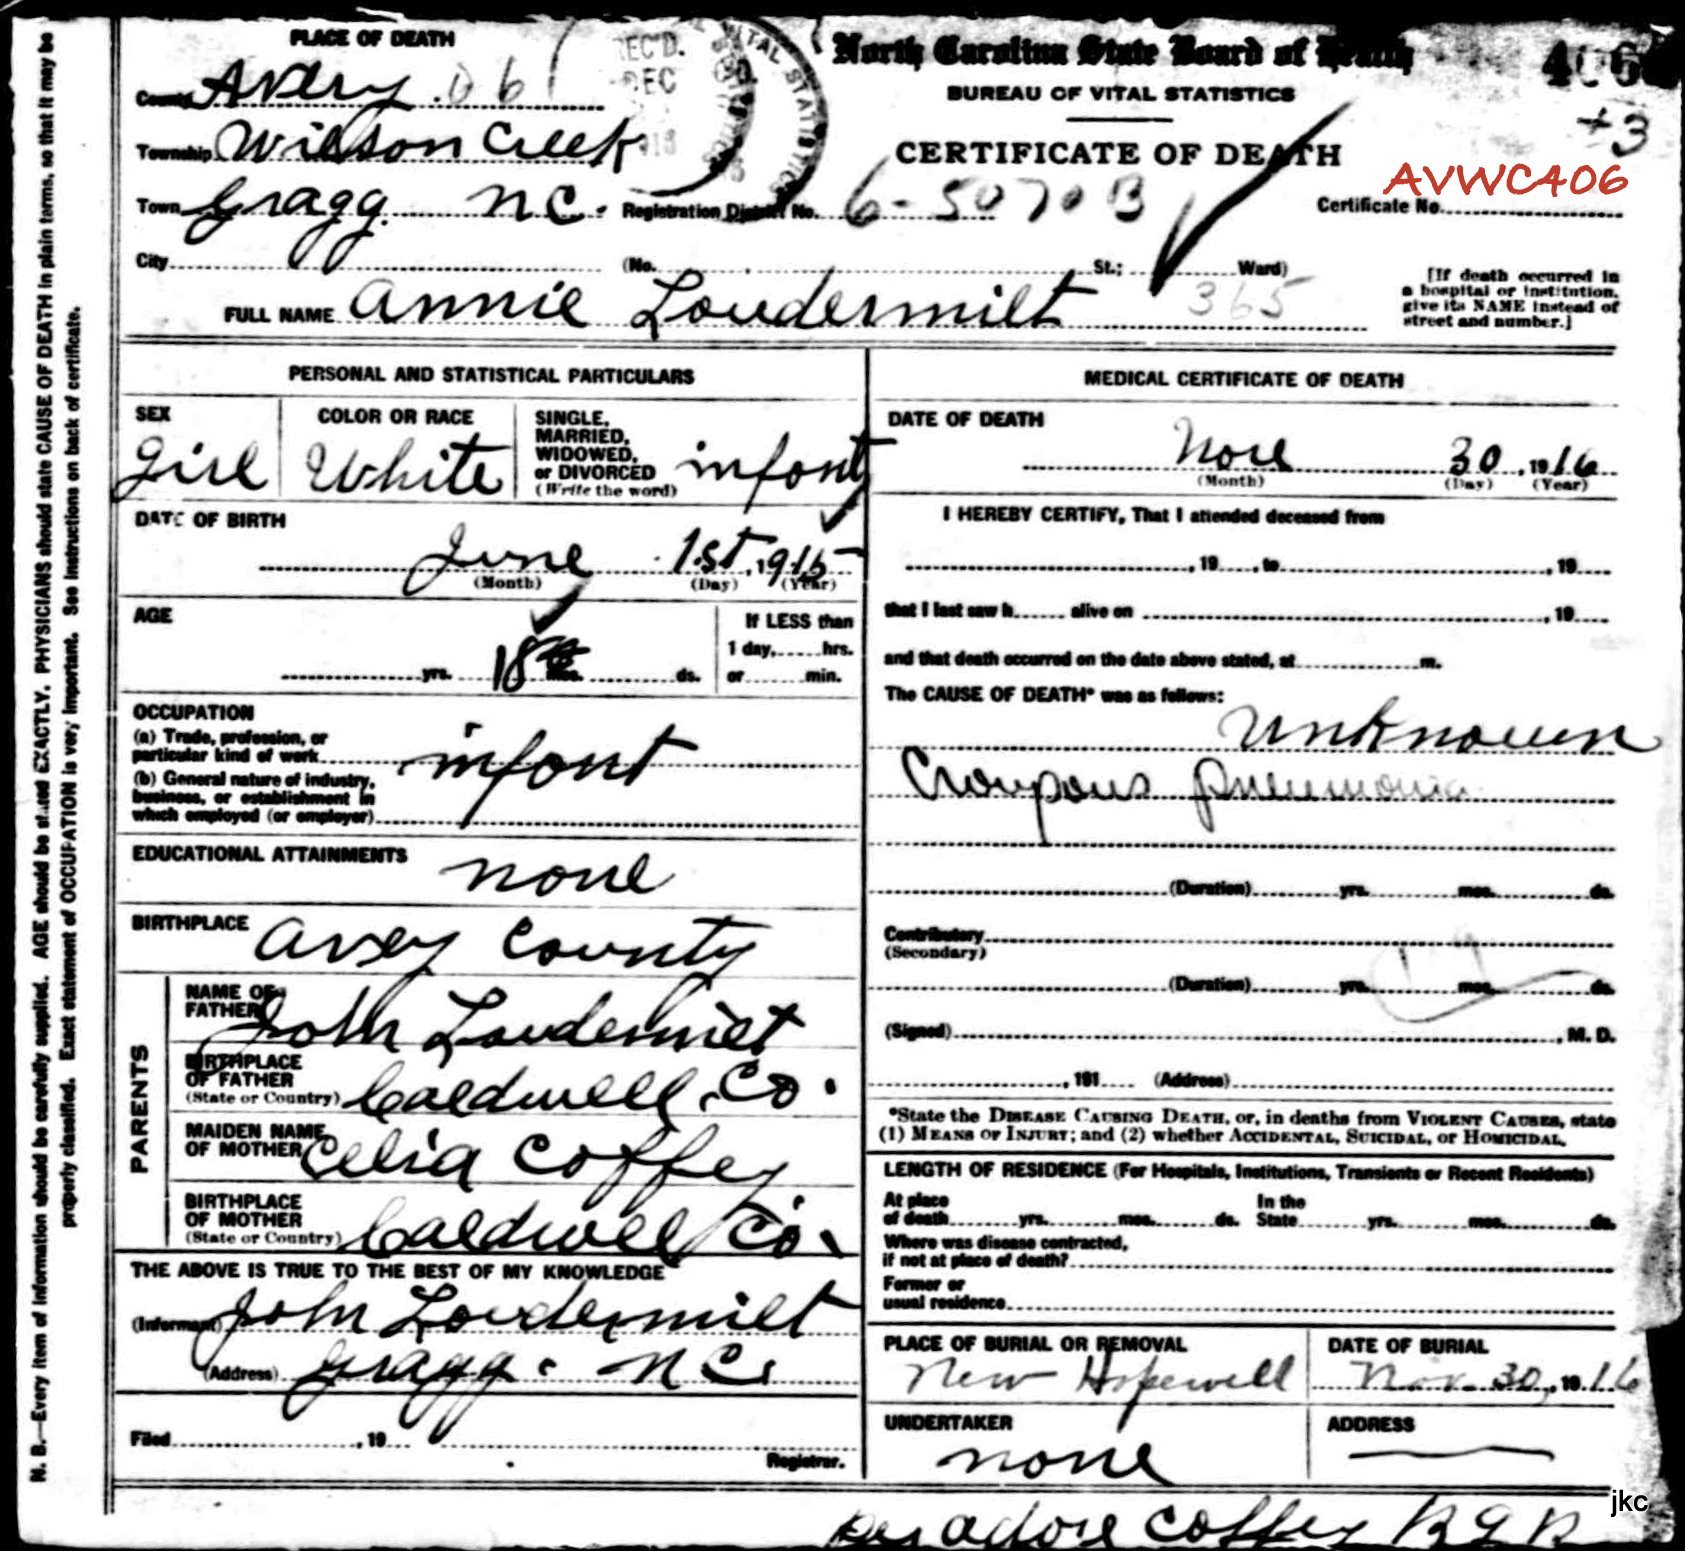 PLACE OF DEATH
County Avery . 06
Township Wilson Creek
Town Gragg. NC.
REC'D.
DEC
VITAL STATISTICS
North Carolina State Board of Health
BUREAU OF VITAL STATISTICS
CERTIFICATE OF DEATH
406
+3
AVWC406
Registration District No. 6-5070B
Certificate No.
City (No. St.; Ward)
FULL NAME Annie Loudermilt 365
[If death occurred in
a hospital or institution,
give its NAME instead of
street and number.]
PERSONAL AND STATISTICAL PARTICULARS
SEX
Girl
COLOR OR RACE
White
SINGLE,
MARRIED,
WIDOWED,
or DIVORCED
(Write the word)
infont
DATE OF BIRTH
June 1st, 1915
(Month) (Day) (Year)
AGE
yrs. 18 mos. ds.
If LESS than
1 day, hrs.
or min.
OCCUPATION
(a) Trade, profession, or
particular kind of work
(b) General nature of industry,
business, or establishment in
which employed (or employer)
infont
EDUCATIONAL ATTAINMENTS none
BIRTHPLACE Avey County
PARENTS
NAME OF
FATHER John Loudermilt
BIRTHPLACE
OF FATHER
(State or Country) Caldwell Co.
MAIDEN NAME
OF MOTHER Celia Coffey
BIRTHPLACE
OF MOTHER
(State or Country) Caldwell Co.
THE ABOVE IS TRUE TO THE BEST OF MY KNOWLEDGE
(Informant) John Loudermilt
(Address) Gragg. NC.
Filed , 19
Registrar.
MEDICAL CERTIFICATE OF DEATH
DATE OF DEATH
Nove 30, 1916
(Month) (Day) (Year)
I HEREBY CERTIFY, That I attended deceased from
, 19 , to , 19
that I last saw h alive on , 19
and that death occurred on the date above stated, at m.
The CAUSE OF DEATH* was as follows:
unknown
Croupous pneumonia
(Duration) yrs. mos. ds.
Contributory
(Secondary)
(Duration) yrs. mos. ds.
(Signed) , M. D.
, 191 (Address)
*State the DISEASE CAUSING DEATH, or, in deaths from VIOLENT CAUSES, state
(1) MEANS OF INJURY; and (2) whether ACCIDENTAL, SUICIDAL, or HOMICIDAL.
LENGTH OF RESIDENCE (For Hospitals, Institutions, Transients or Recent Residents)
At place
of death yrs. mos. ds.
In the
State yrs. mos. ds.
Where was disease contracted,
if not at place of death?
Former or
usual residence
PLACE OF BURIAL OR REMOVAL
New Hopewell
DATE OF BURIAL
Nov. 30, 1916
UNDERTAKER
none
ADDRESS
Coffey
jkc
N. B.—Every item of information should be carefully supplied. AGE should be stated EXACTLY. PHYSICIANS should state CAUSE OF DEATH in plain terms, so that it may be
properly classified. Exact statement of OCCUPATION is very important. See instructions on back of certificate.